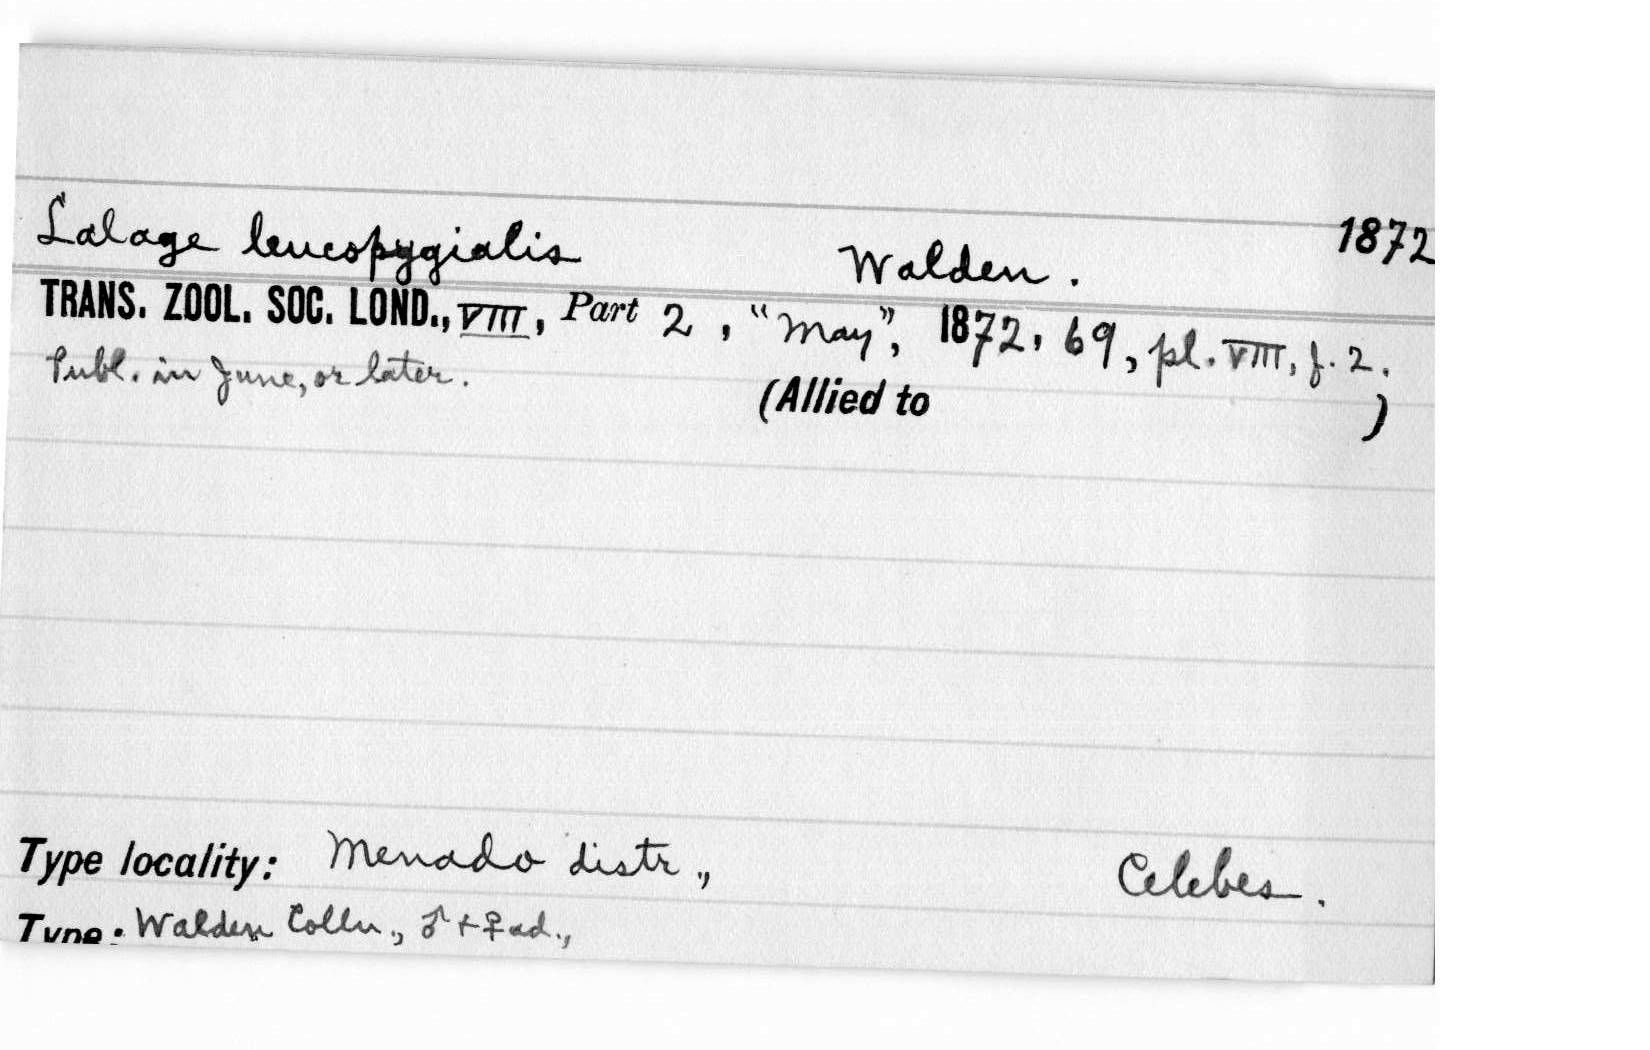 Lalage leucopygialis Walden. 1872
TRANS. ZOOL. SOC. LOND., VIII, Part 2, "May", 1872, 69, pl. VIII, f. 2.
Publ. in June, or later.
(Allied to )
Type locality: Menado distr., Celebes.
Type: Walden Colln., ♂ + ♀ ad.,